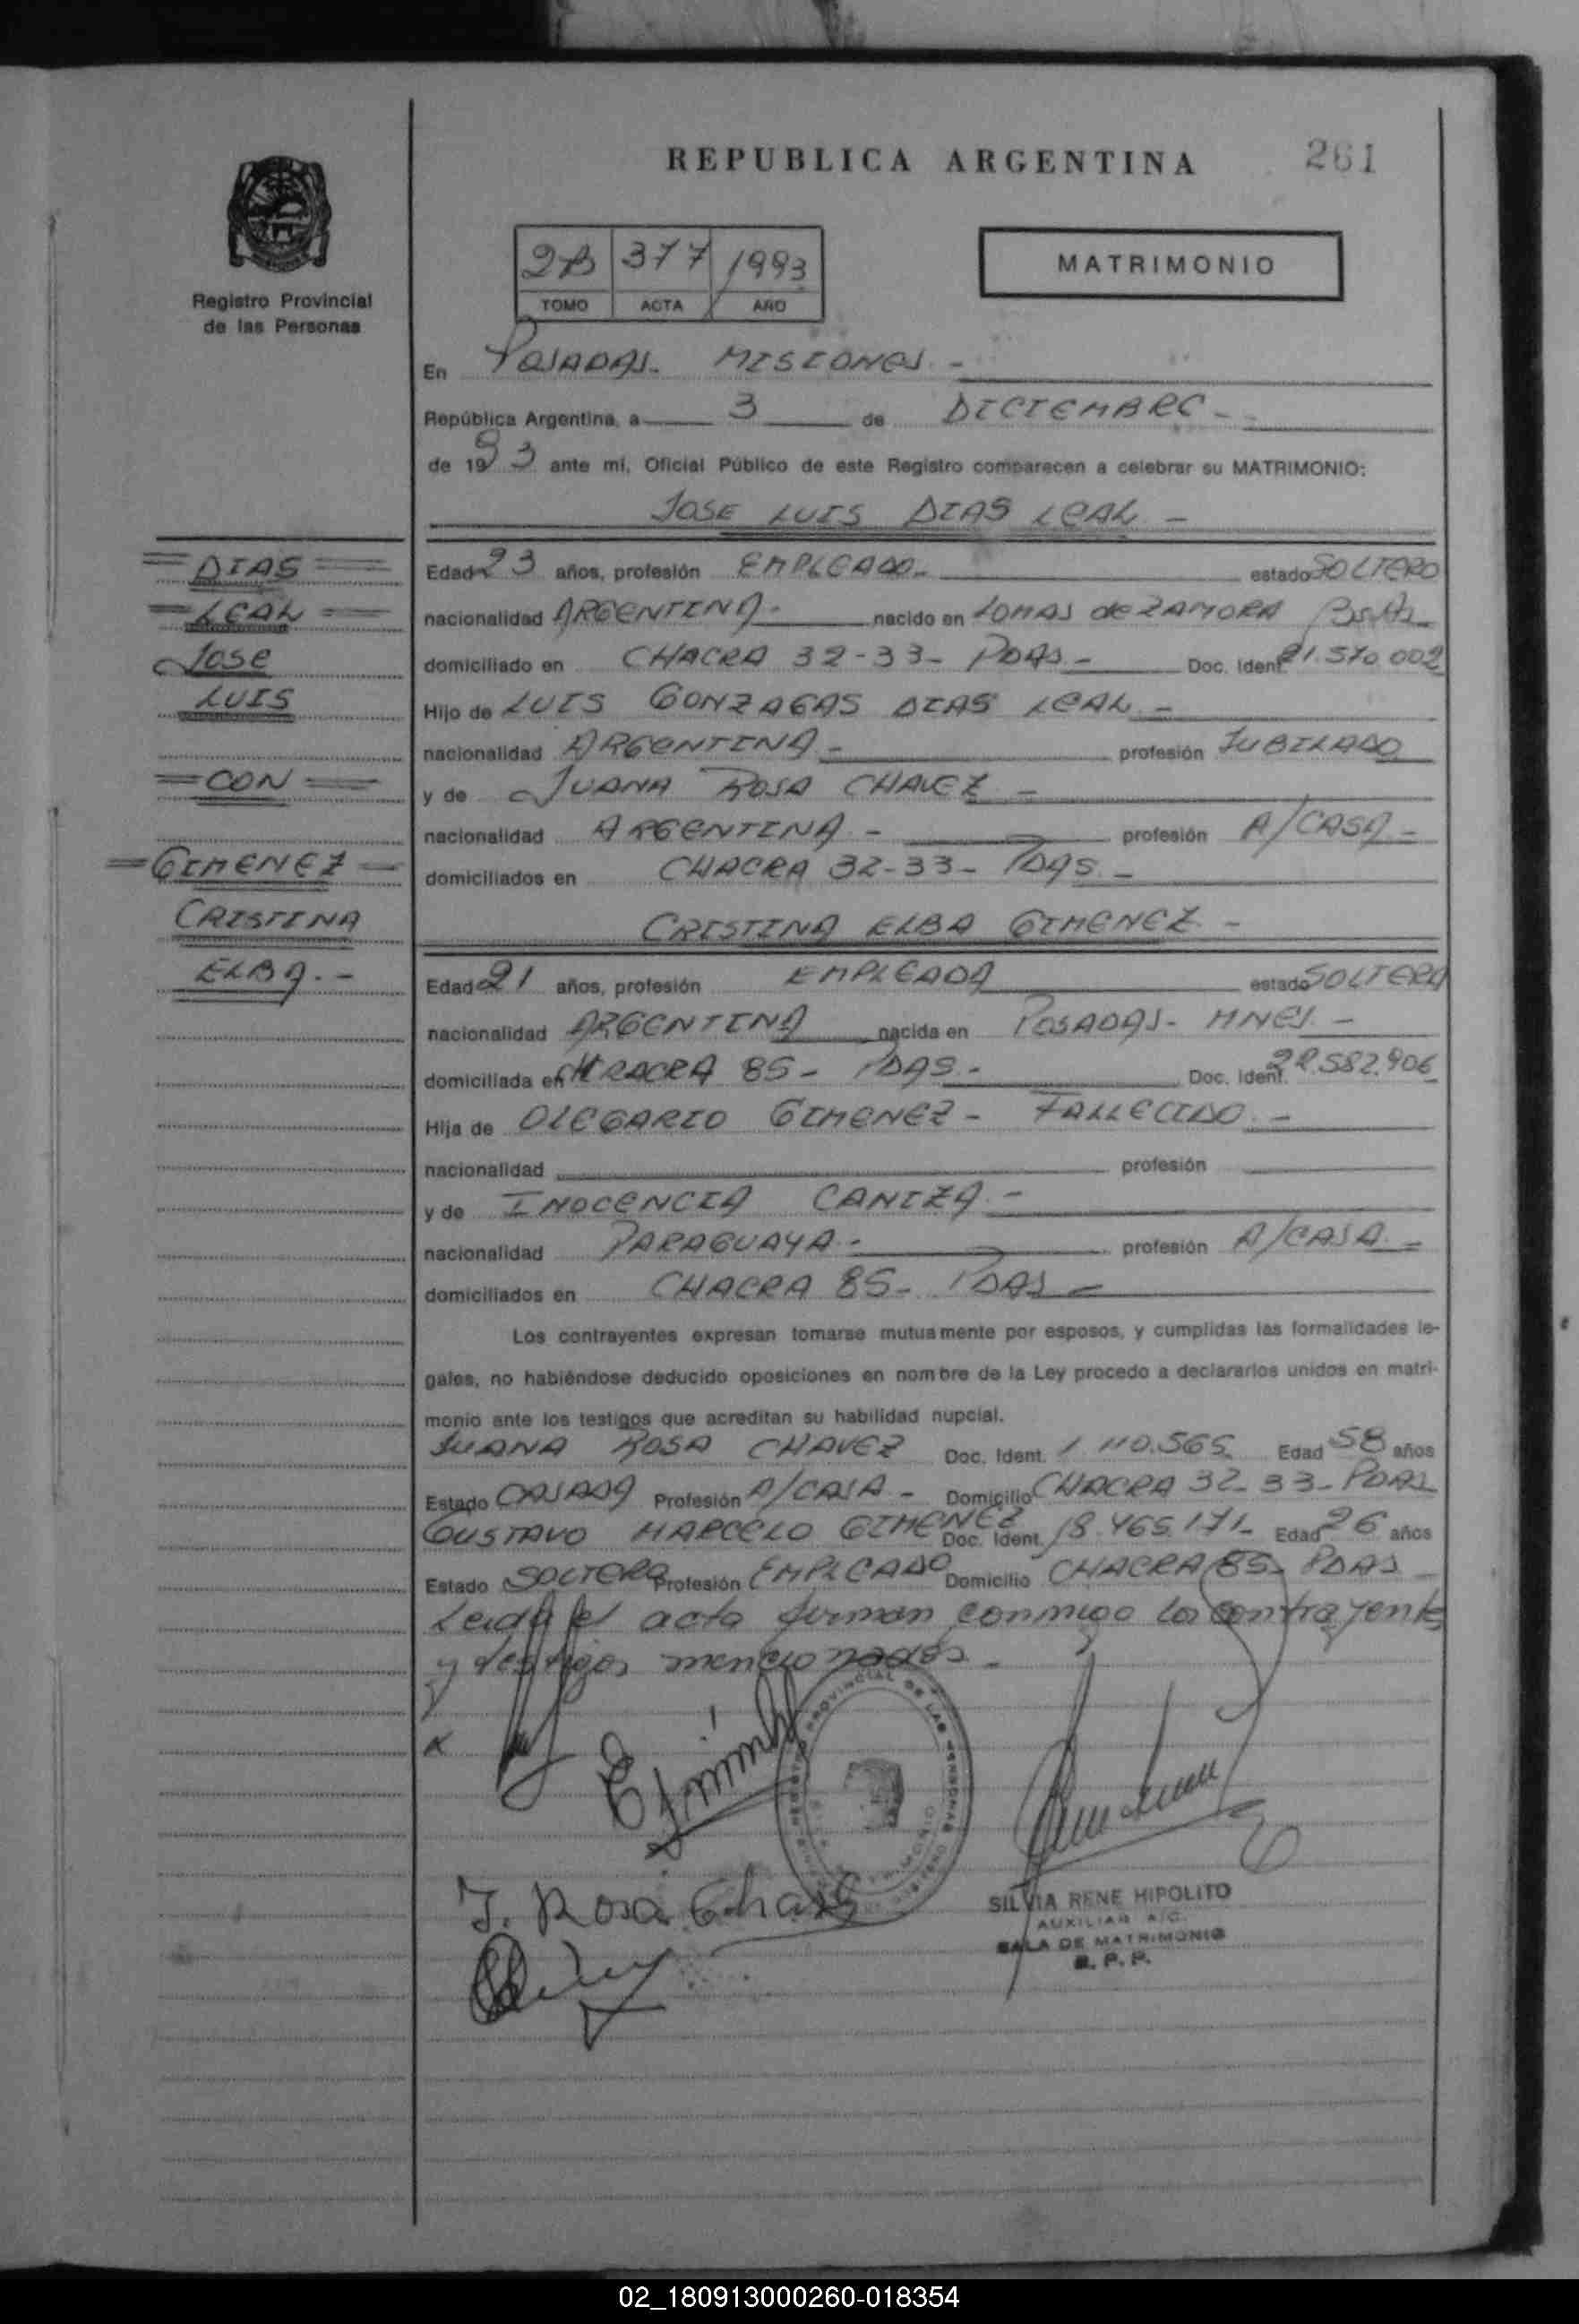 REPUBLICA ARGENTINA 261
Registro Provincial
de las Personas
2B 377 1993
TOMO ACTA AÑO
MATRIMONIO
En POSADAS. MISIONES. -
República Argentina, a 3 de DICIEMBRE -
de 1993 ante mí, Oficial Público de este Registro comparecen a celebrar su MATRIMONIO:
JOSE LUIS DIAS LEAL -
= DIAS =
= LEAL =
JOSE
LUIS
= CON =
= GIMENEZ -
CRISTINA
ELBA. -
Edad 23 años, profesión EMPLEADO - estado SOLTERO
nacionalidad ARGENTINA - nacido en LOMAS de ZAMORA Bs. As.
domiciliado en CHACRA 32-33- PDAS - Doc. Ident. 21.570.002
Hijo de LUIS GONZAGAS DIAS LEAL -
nacionalidad ARGENTINA - profesión JUBILADO
y de JUANA ROSA CHAVEZ -
nacionalidad ARGENTINA - profesión A/CASA -
domiciliados en CHACRA 32-33- PDAS. -
CRISTINA ELBA GIMENEZ. -
Edad 21 años, profesión EMPLEADA estado SOLTERA
nacionalidad ARGENTINA nacida en POSADAS- MNES. -
domiciliada en CHACRA 85- PDAS. - Doc. Ident. 22.582.906
Hija de OLEGARIO GIMENEZ - FALLECIDO. -
nacionalidad profesión
y de INOCENCIA CANIZA. -
nacionalidad PARAGUAYA - profesión A/CASA. -
domiciliados en CHACRA 85- PDAS -
Los contrayentes expresan tomarse mutuamente por esposos, y cumplidas las formalidades le-
gales, no habiéndose deducido oposiciones en nombre de la Ley procedo a declararlos unidos en matri-
monio ante los testigos que acreditan su habilidad nupcial.
JUANA ROSA CHAVEZ Doc. Ident. 1.110.565 Edad 58 años
Estado CASADA Profesión A/CASA - Domicilio CHACRA 32-33- PDAS
GUSTAVO MARCELO GIMENEZ Doc. Ident. 18.465.171- Edad 26 años
Estado SOLTERO Profesión EMPLEADO Domicilio CHACRA 85- PDAS
Leida el acta firman conmigo los contrayente
y testigos mencionados -
J. Rosa Chavez
REGISTRO PROVINCIAL DE LAS PERSONAS
SILVIA RENE HIPOLITO
AUXILIAR A/C.
SALA DE MATRIMONIO
R. P. P.
02_180913000260-018354